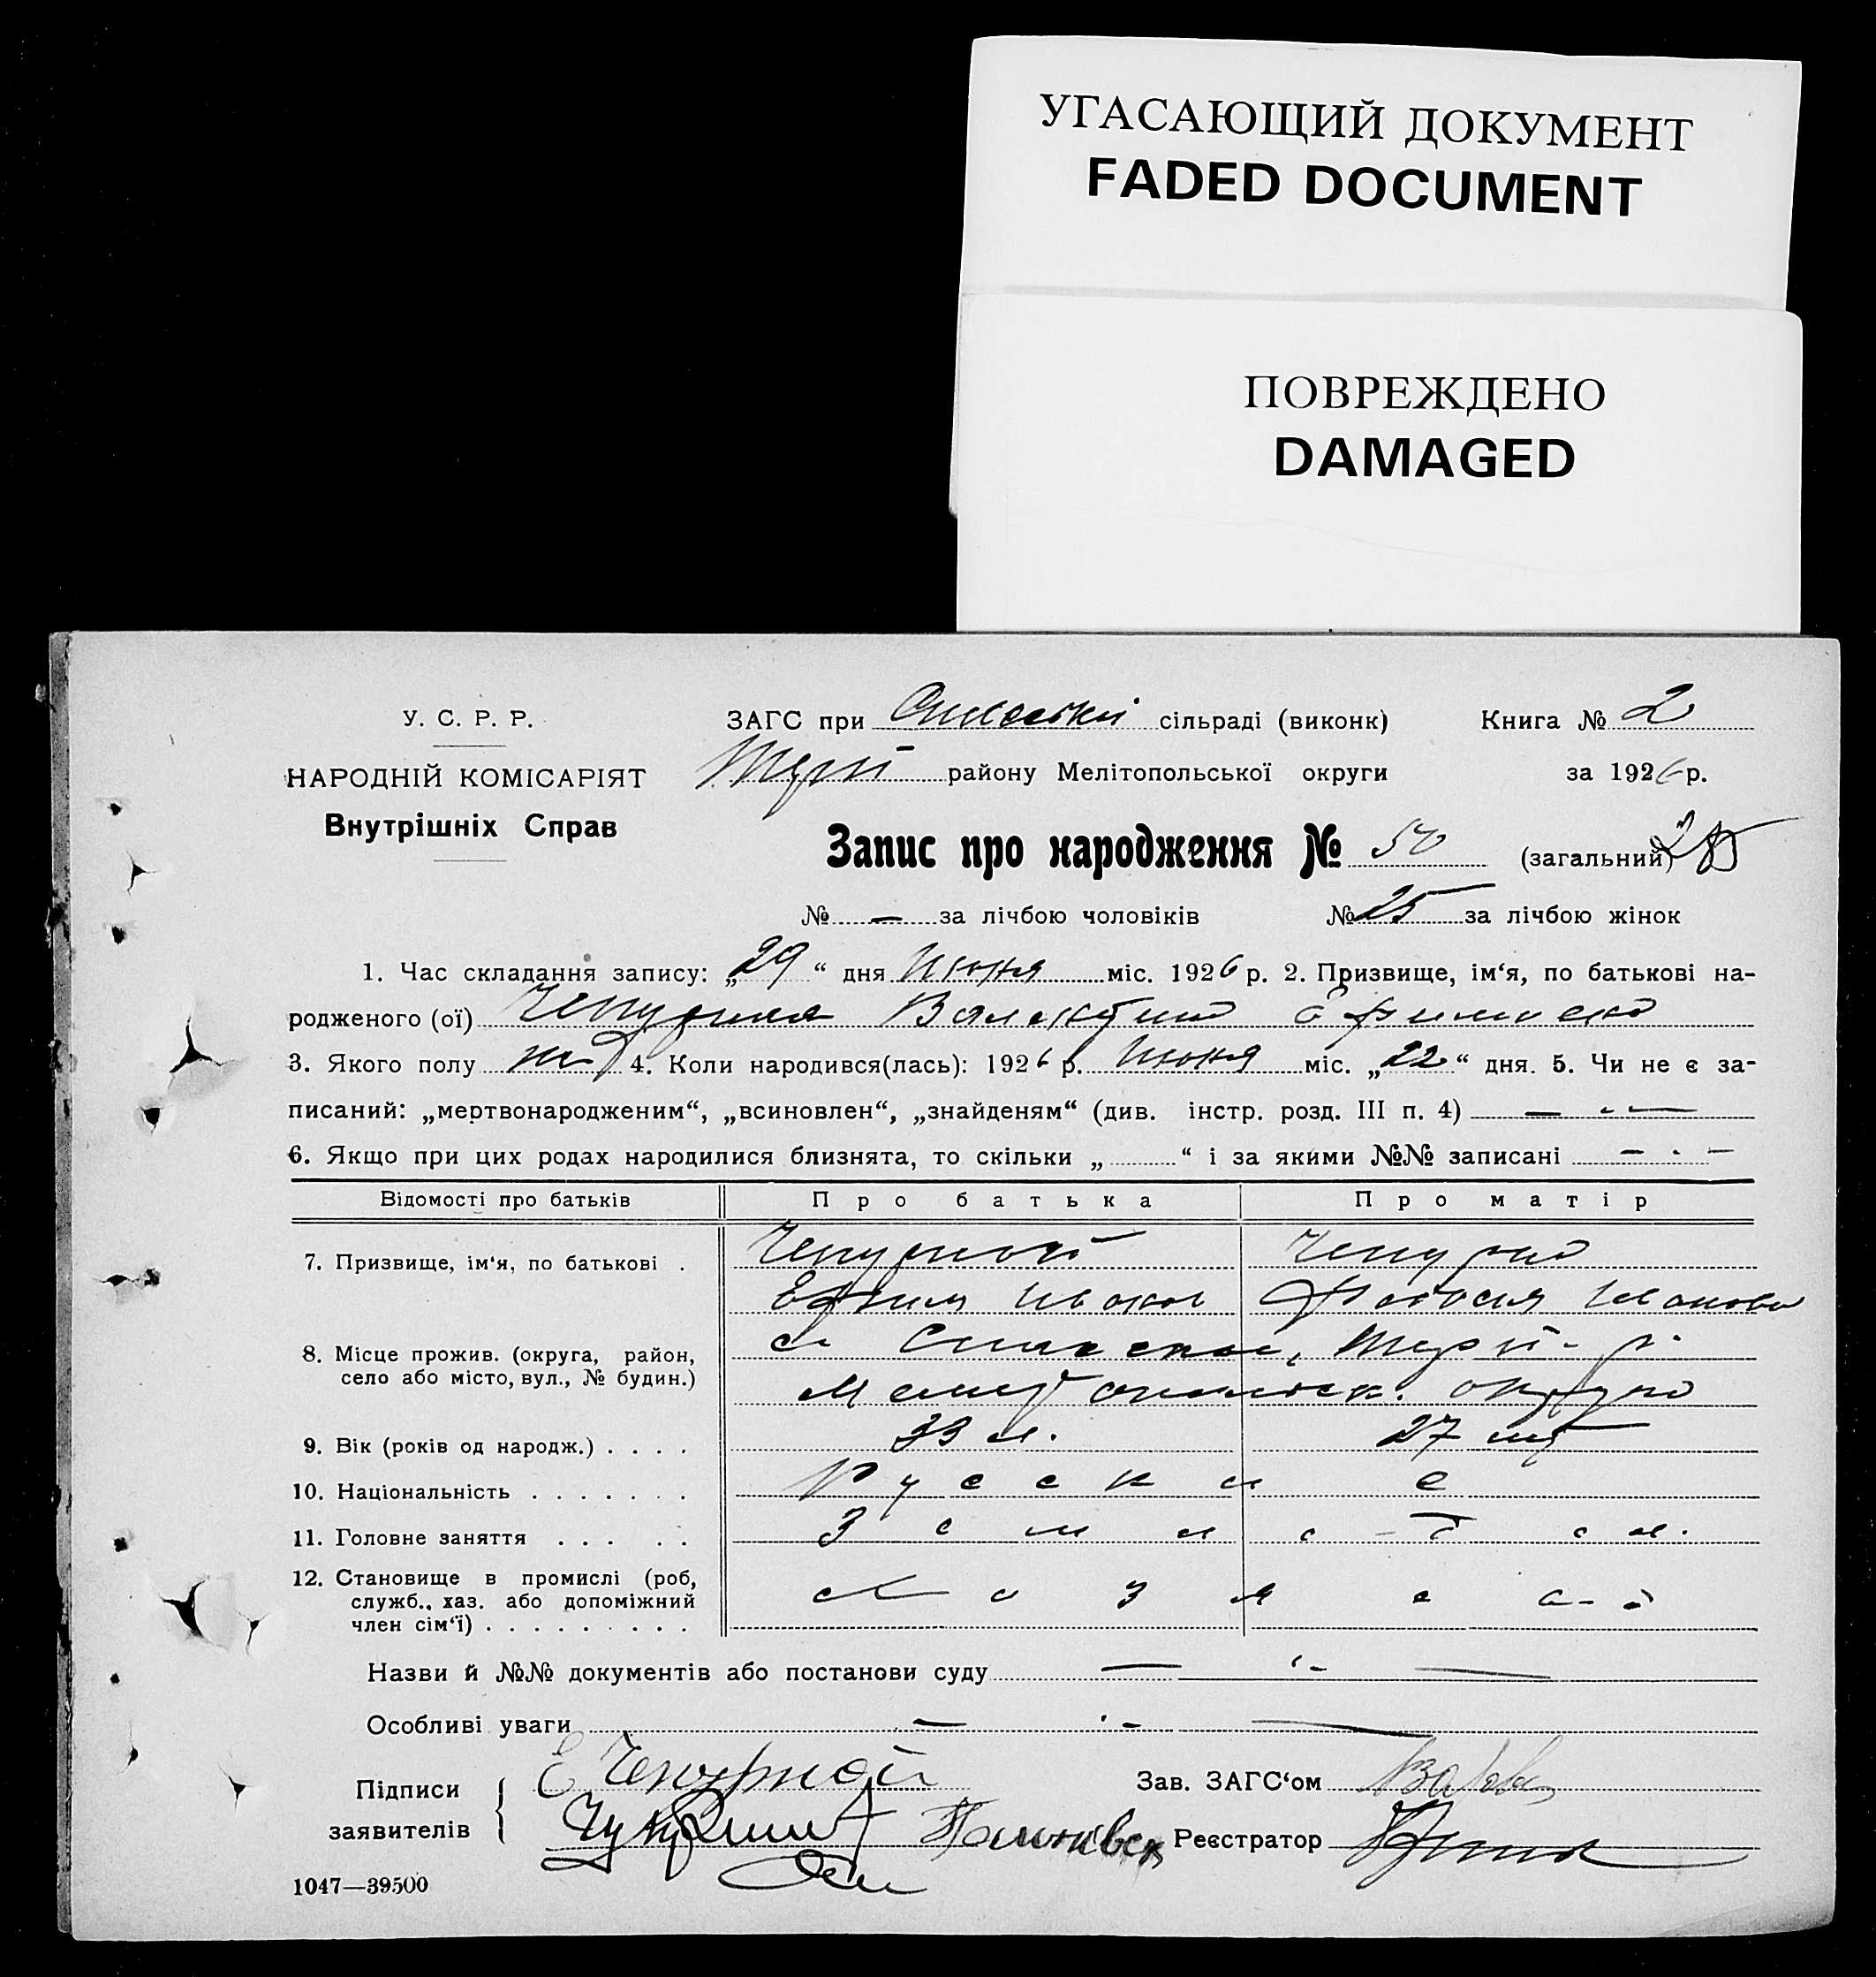 УГАСАЮЩИЙ ДОКУМЕНТ
FADED DOCUMENT
ПОВРЕЖДЕНО
DAMAGED
У. С. Р. Р. ЗАГС при сільраді (виконк) Книга № 2
НАРОДНІЙ КОМІСАРІЯТ району Мелітопольської округи за 1926 р.
Внутрішніх Справ
Запис про народження № 50 (загальний)
№ — за лічбою чоловіків № 25 за лічбою жінок
1. Час складання запису: „29“ дня Июня міс. 1926 р. 2. Призвище, ім‘я, по батькові на-
родженого (ої) Чепурная Валентина
3. Якого полу 4. Коли народився(лась): 1926 р. Июня міс. „22“ дня. 5. Чи не є за-
писаний: „мертвонародженим“, „всиновлен“, „знайденям“ (див. інстр. розд. III п. 4) —
6. Якщо при цих родах народилися близнята, то скільки „ “ і за якими №№ записані —
Відомості про батьків Про батька Про матір
7. Призвище, ім‘я, по батькові . Чепурной
Ефим
8. Місце прожив. (округа, район,
село або місто, вул., № будин.)
9. Вік (років од народж.) . . . . 33 л. 27 лет
10. Національність . . . . . . . Русские
11. Головне заняття . . . . .
12. Становище в промислі (роб,
служб., хаз. або допоміжний
член сім‘ї) . . . . . . . . .
Назви й №№ документів або постанови суду —
Особливі уваги —
Підписи Е Чепурной Зав. ЗАГС‘ом
заявителів Реєстратор
1047—39500